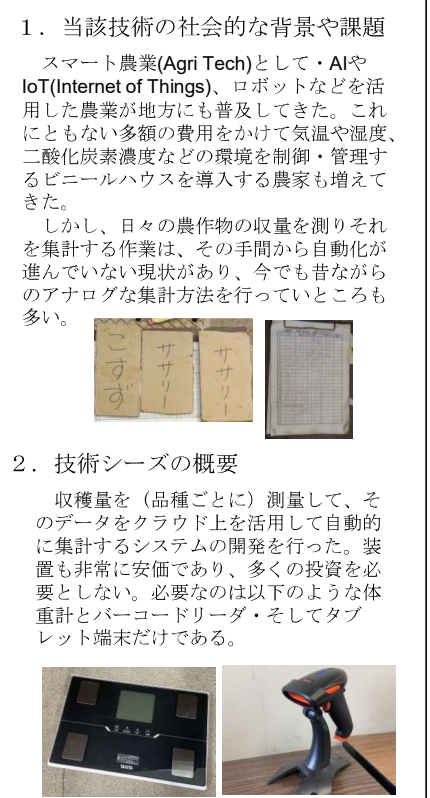 １．当該技術の社会的な背景や課題
スマート農業(Agri Tech)として・AIや
IoT(Internet of Things)、ロボットなどを活
用した農業が地方にも普及してきた。これ
にともない多額の費用をかけて気温や湿度、
二酸化炭素濃度などの環境を制御・管理す
るビニールハウスを導入する農家も増えて
きた。
しかし、日々の農作物の収量を測りそれ
を集計する作業は、その手間から自動化が
進んでいない現状があり、今でも昔ながら
のアナログな集計方法を行っていところも
多い。
こすず
ササリー
ササリー
２．技術シーズの概要
収穫量を（品種ごとに）測量して、そ
のデータをクラウド上を活用して自動的
に集計するシステムの開発を行った。装
置も非常に安価であり、多くの投資を必
要としない。必要なのは以下のような体
重計とバーコードリーダ・そしてタブ
レット端末だけである。